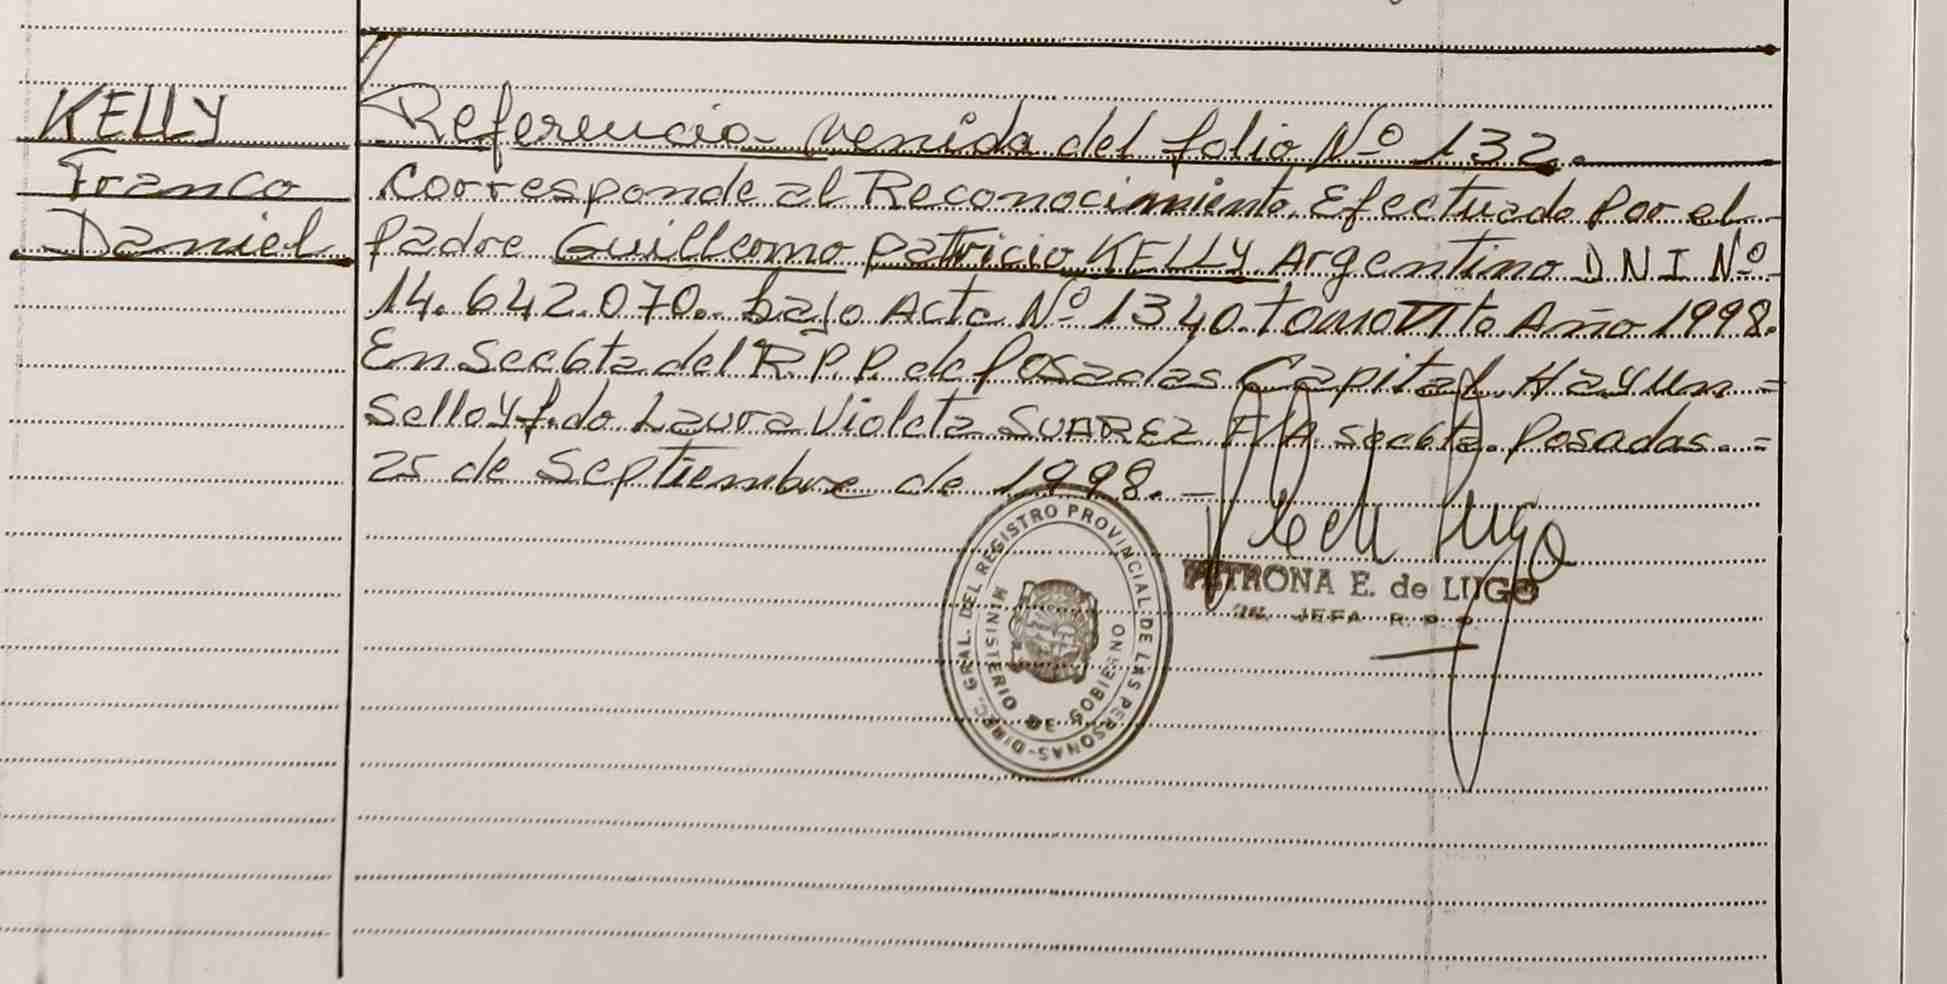 KELLY
Franco
Daniel
Referencia venida del folio Nº 132.
Corresponde al Reconocimiento Efectuado Por el
Padre Guillermo Patricio KELLY Argentino D N I Nº
14.642.070. bajo Acta Nº 1340. tomo VIto Año 1998.
En Sec 6ta del R.P.P. de Posadas Capital. Hay un =
Sello y f.do Laura Violeta SUAREZ F/A. sec 6ta. Posadas. =
25 de Septiembre de 1998. -
Lugo
PETRONA E. de LUGO
JEFA R. P. P.
DIREC. GRAL. DEL REGISTRO PROVINCIAL DE LAS PERSONAS-
MINISTERIO DE GOBIERNO